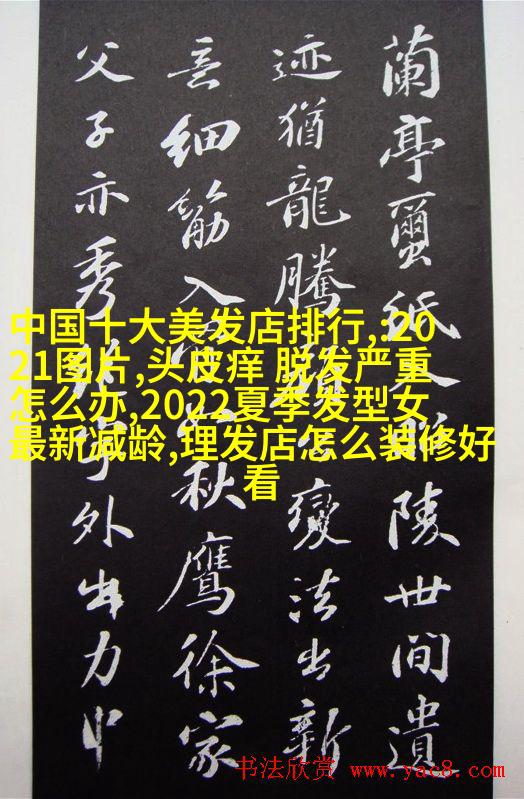 中国十大美发店排行,:20
21图片,头皮痒 脱发严重
怎么办,2022夏季发型女
最新减龄,理发店怎么装修好
看
蘭亭紙入昭陵世間遺
迹猶龍騰變法出新
意細筋入秋鷹徐家
父子亦秀字外出力中
书法欣赏 www.yac8.com